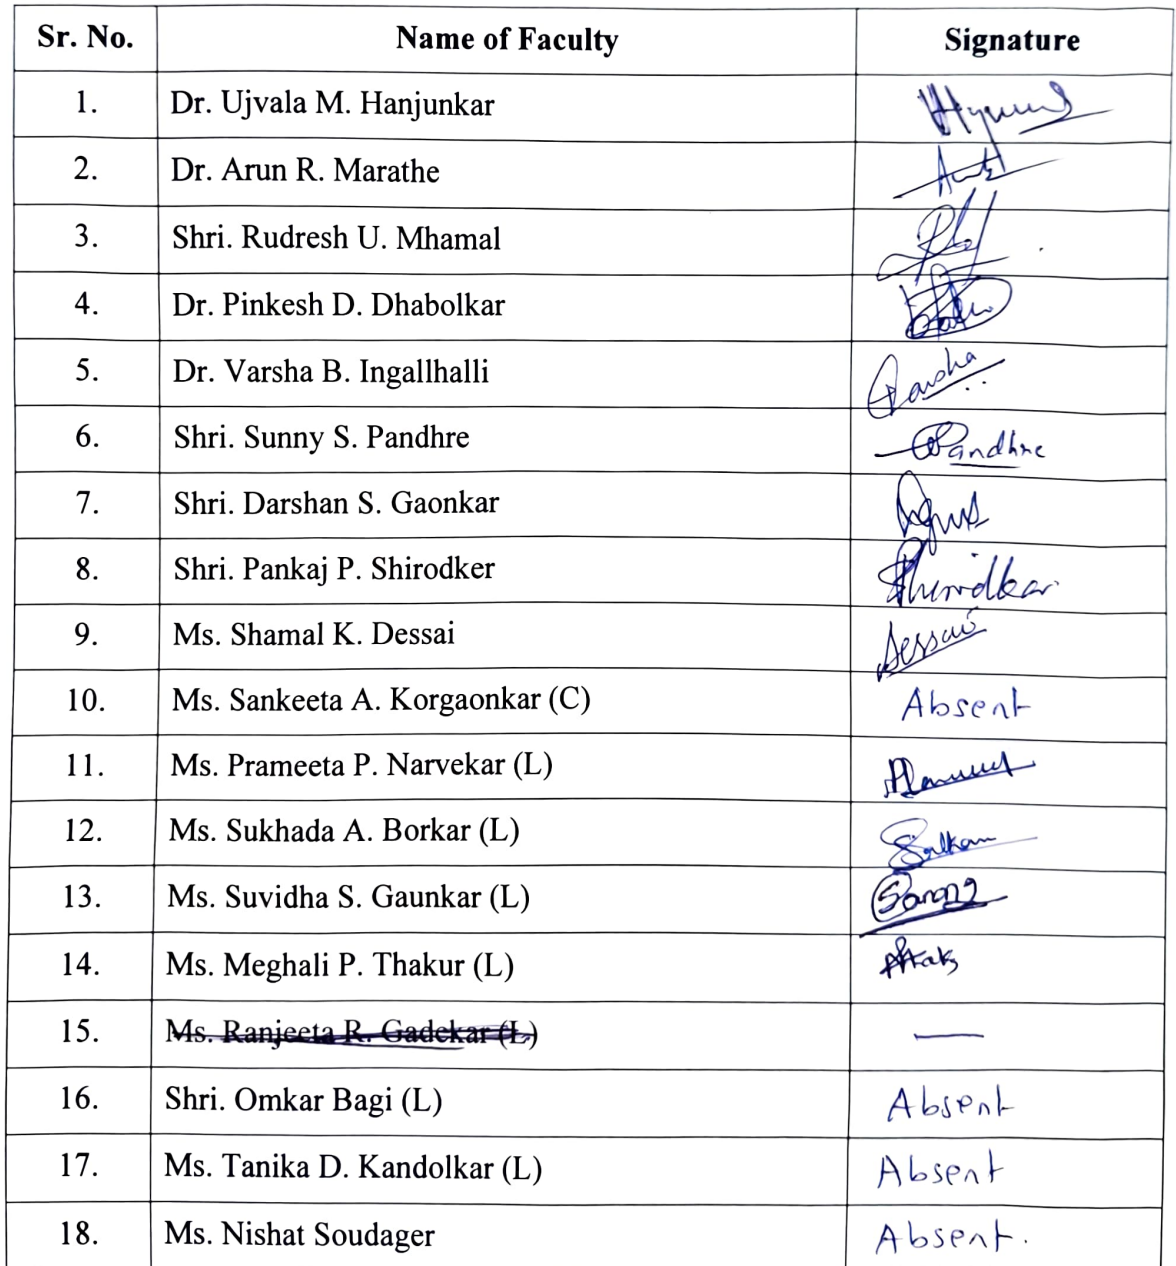 Sr. No. Name of Faculty Signature
1. Dr. Ujvala M. Hanjunkar
2. Dr. Arun R. Marathe
3. Shri. Rudresh U. Mhamal
4. Dr. Pinkesh D. Dhabolkar
5. Dr. Varsha B. Ingallhalli Varsha
6. Shri. Sunny S. Pandhre Pandhre
7. Shri. Darshan S. Gaonkar
8. Shri. Pankaj P. Shirodker Shirodkar
9. Ms. Shamal K. Dessai Dessai
10. Ms. Sankeeta A. Korgaonkar (C) Absent
11. Ms. Prameeta P. Narvekar (L)
12. Ms. Sukhada A. Borkar (L)
13. Ms. Suvidha S. Gaunkar (L)
14. Ms. Meghali P. Thakur (L)
15. Ms. Ranjeeta R. Gadekar (L) —
16. Shri. Omkar Bagi (L) Absent
17. Ms. Tanika D. Kandolkar (L) Absent
18. Ms. Nishat Soudager Absent.